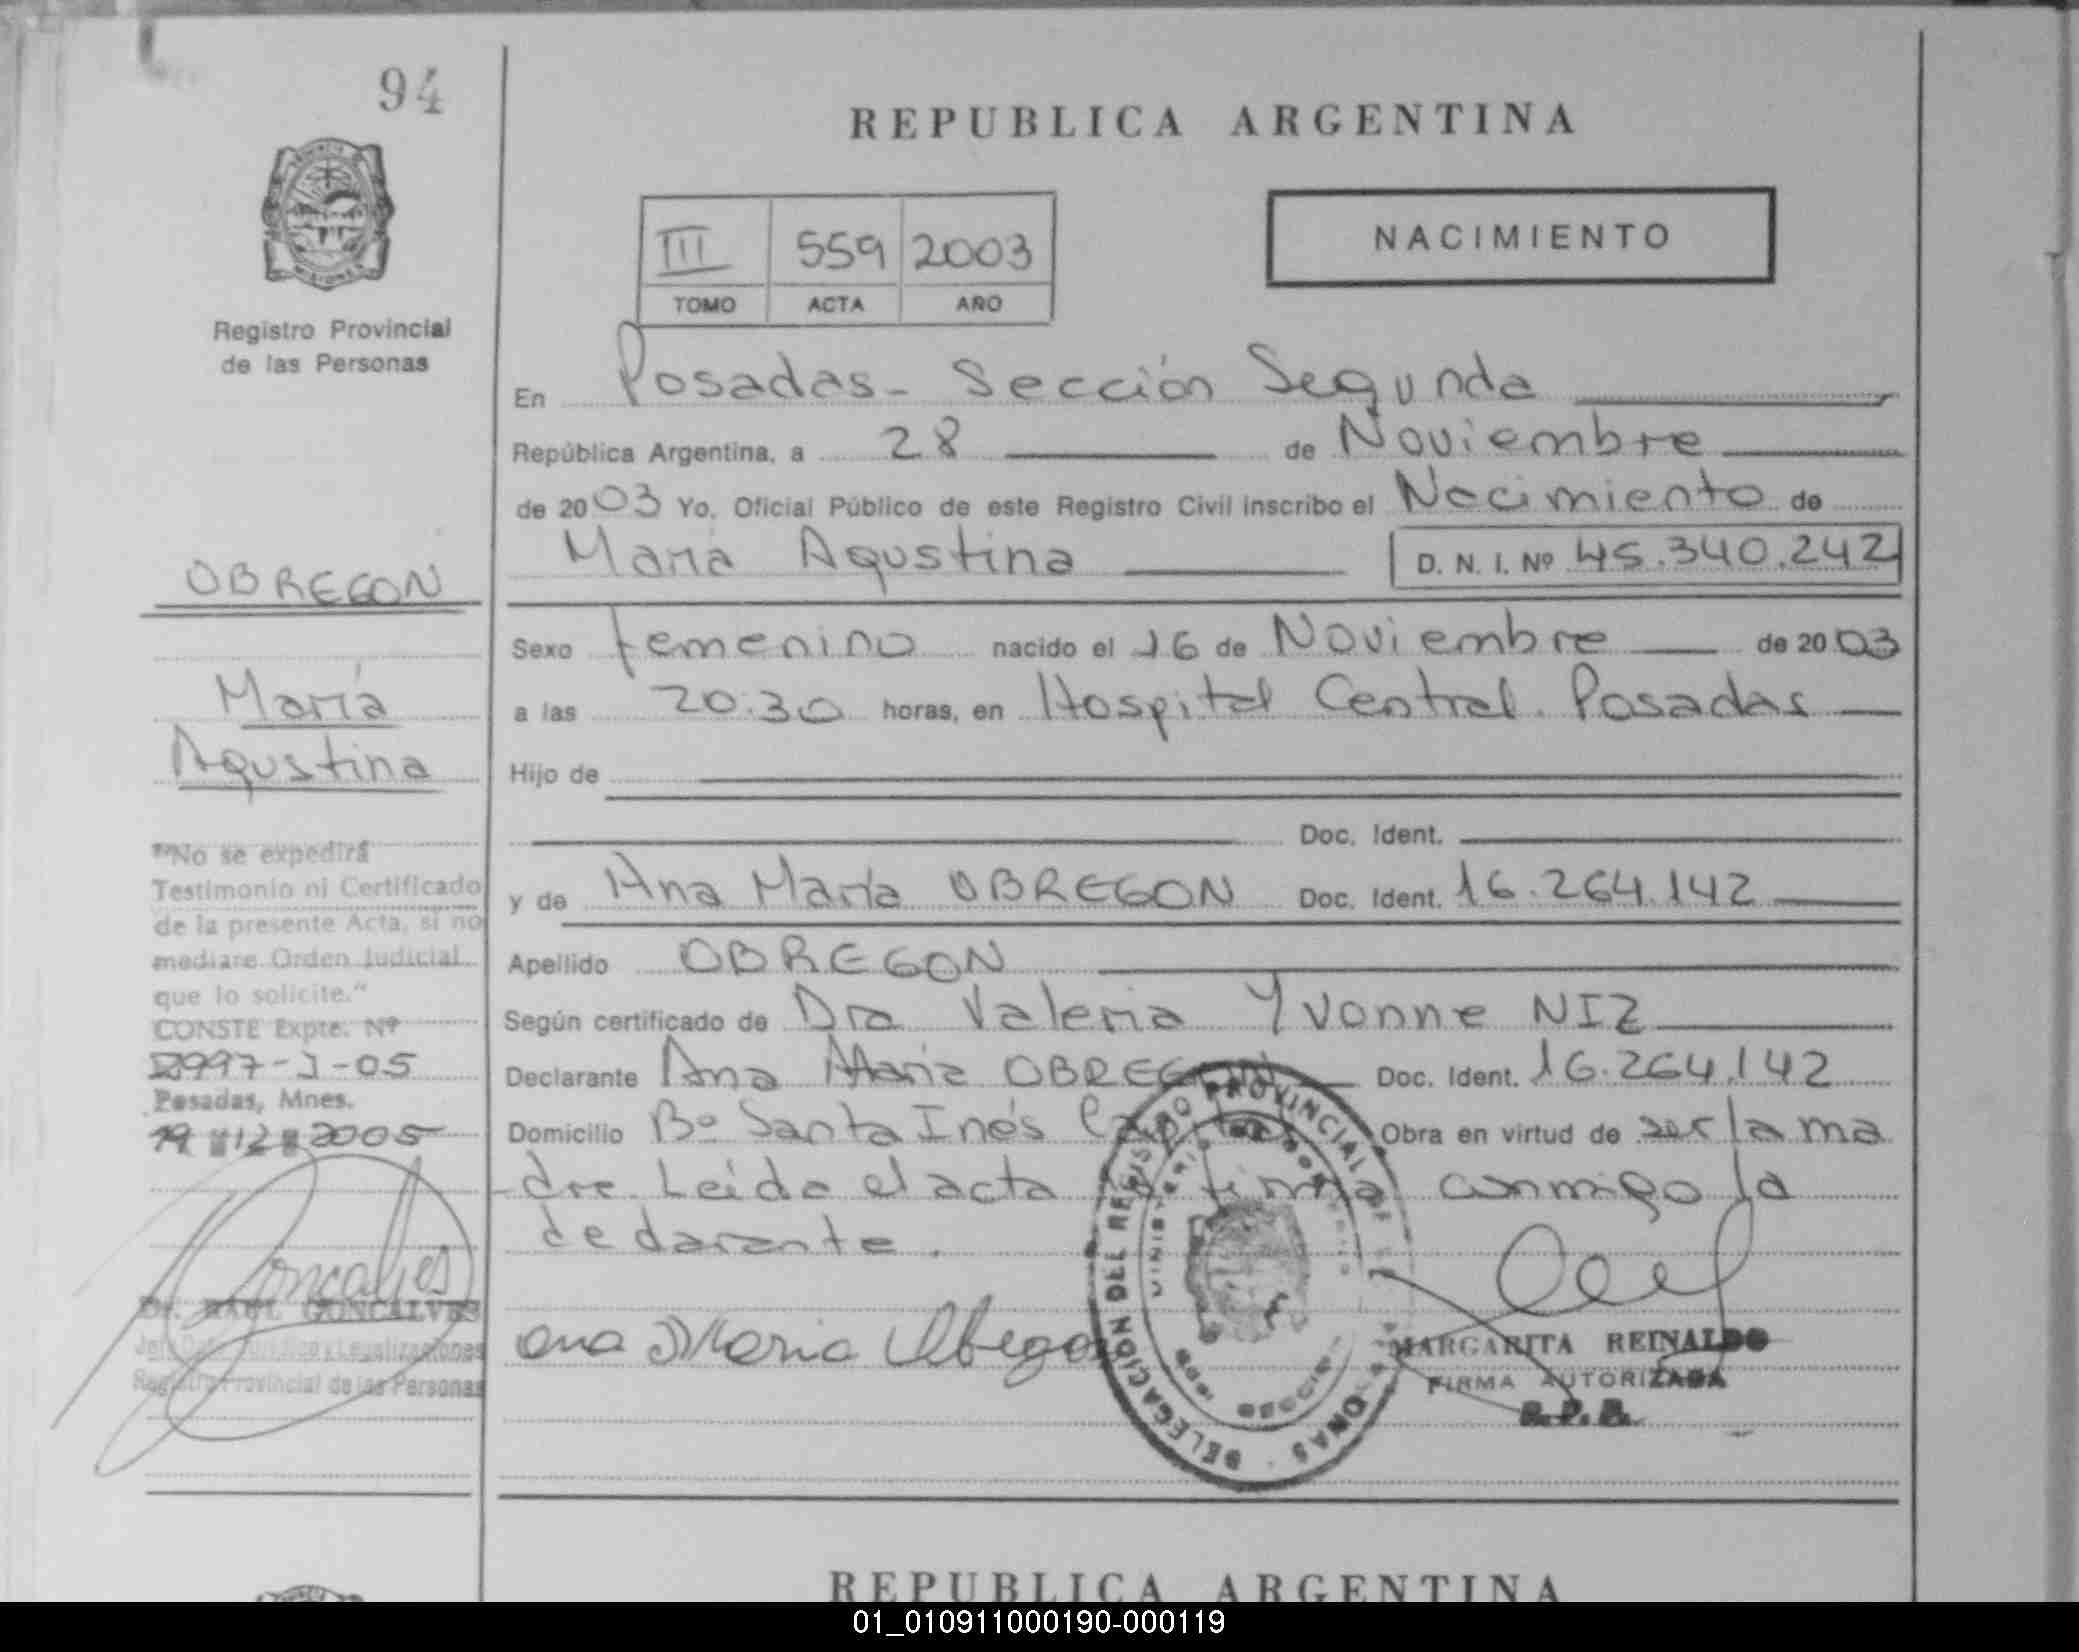 94
REPUBLICA ARGENTINA
III 559 2003
TOMO ACTA AÑO
NACIMIENTO
Registro Provincial
de las Personas
En Posadas - Sección Segunda
República Argentina, a 28 de Noviembre
de 2003 Yo, Oficial Público de este Registro Civil inscribo el Nacimiento de
María Agustina D. N. I. Nº 45.340.242
OBREGON
María
Agustina
Sexo femenino nacido el 16 de Noviembre de 2003
a las 20:30 horas, en Hospital Central. Posadas
Hijo de
Doc. Ident.
y de Ana María OBREGON Doc. Ident. 16.264.142
Apellido OBREGON
Según certificado de Dra Valeria Yvonne NIZ
Declarante Ana María OBREGON Doc. Ident. 16.264.142
Domicilio Bº Santa Inés Obra en virtud de ser la ma
dre. Leida el acta firma conmigo la
declarante.
"No se expedirá
Testimonio ni Certificado
de la presente Acta, si no
mediare Orden Judicial
que lo solicite."
CONSTE Expte. Nº
2997-J-05
Posadas, Mnes.
12 2005
Goncalves
Dr. RAUL GONCALVES
Registro Provincial de las Personas
ana Maria Obregon
DELEGACION DEL REGISTRO PROVINCIAL DE
MARGARITA REINALDO
FIRMA AUTORIZADA
REPUBLICA ARGENTINA
01_010911000190-000119